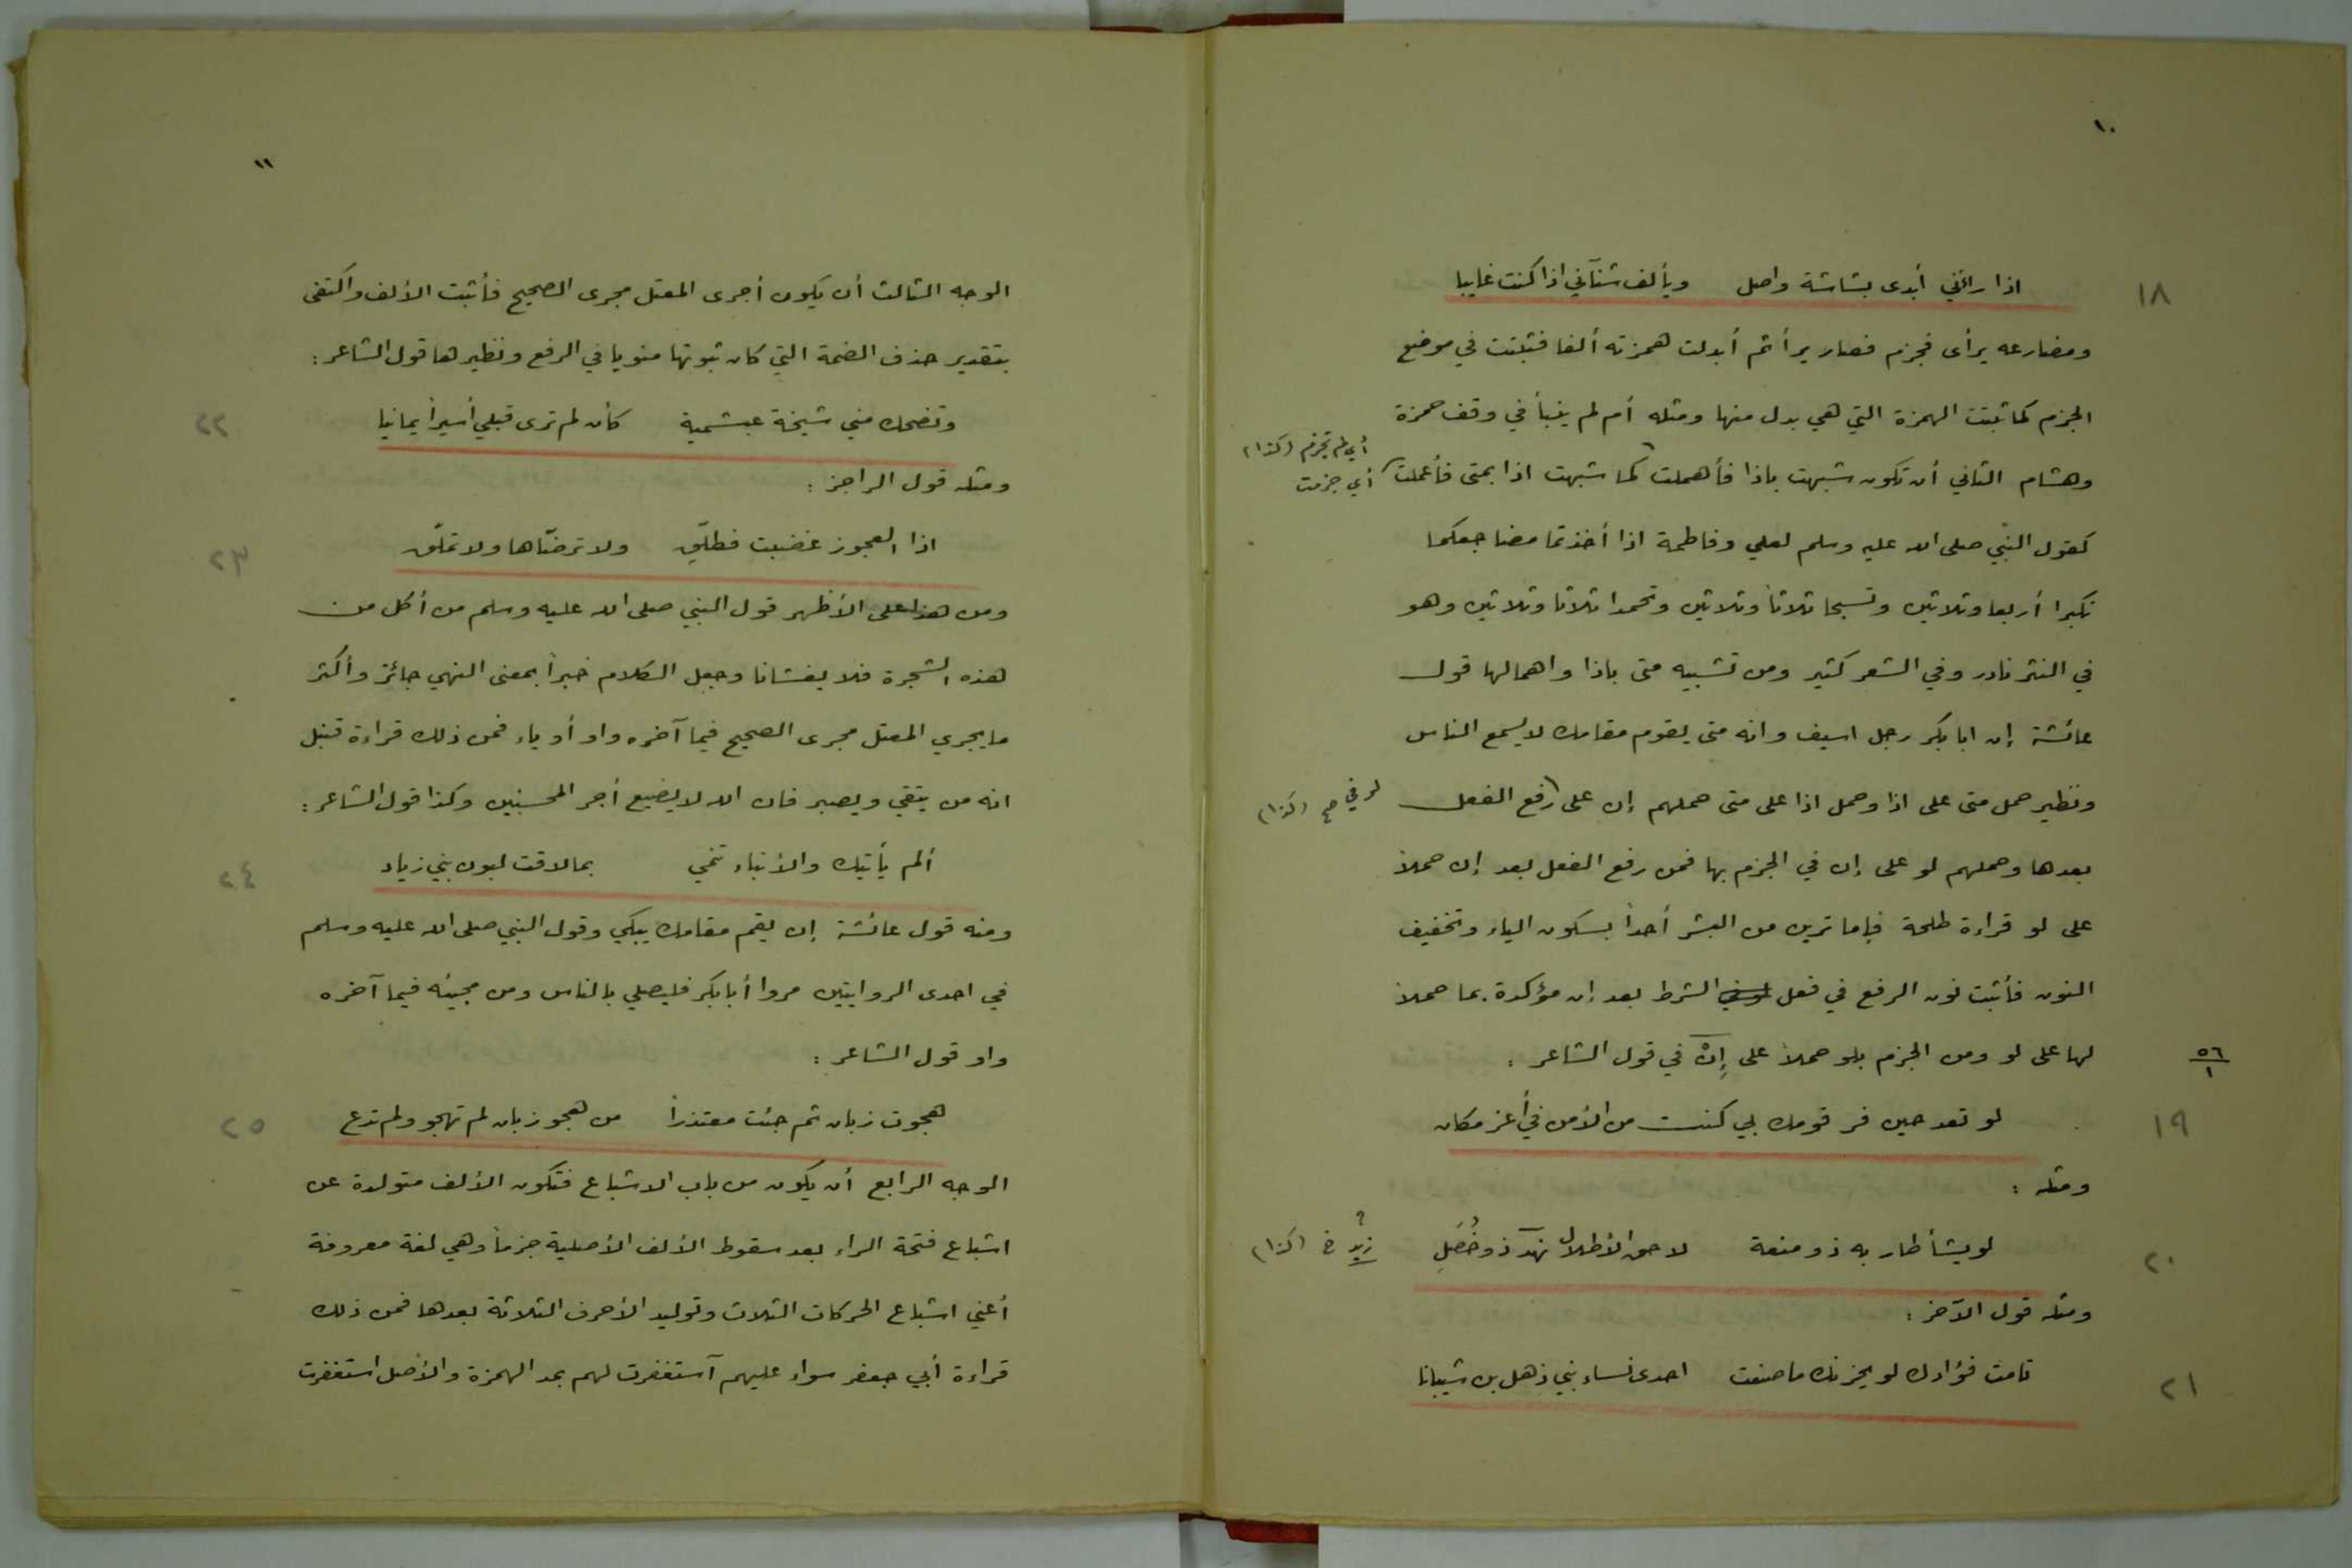 ١٠
١٨
اذا رائني أبدى بشاشة واصل ويألف شنآني اذا كنت غايبا
ومضارعه يرأى فجزم فصار يرأ ثم أبدلت همزته ألفا فثبتت في موضع
الجزم كما ثبتت الهمزة التي هي بدل منها ومثله أم لم ينبأ في وقف حمزة
أي لم تجزم (كذا)
وهشام الثاني أن تكون شبهت باذا فأهملت كما شبهت اذا بمتى فأعملت
أي جزمت
كقول النبي صلى الله عليه وسلم لعلي وفاطمة اذا أخذتما مضاجعكما
تكبرا أربعا وثلاثين وتسبحا ثلاثا وثلاثين وتحمدا ثلاثا وثلاثين وهو
في النثر نادر وفي الشعر كثير ومن تشبيه متى باذا واهمالها قول
عائشة إن ابا بكر رجل اسيف وانه متى يقوم مقامك لا يسمع الناس
ونظير حمل متى على اذا وحمل اذا على متى حملهم إن على رفع الفعل
لو في صح (كذا)
بعدها وحملهم لو على إن في الجزم بها فمن رفع الفعل بعد إن حملا
على لو قراءة طلحة فإما ترين من البشر أحداً بسكون الياء وتخفيف
النون فأثبت نون الرفع في فعل الشرط بعد إن مؤكدة بما حملا
لها على لو ومن الجزم بلو حملا على إنْ في قول الشاعر :
٥٦
١
لو تعد حين فر قومك بي كنت من الأمن في أعز مكان
١٩
ومثله :
لو يشأ طار به ذو منعة لاحق الأطلال نهد ذو خُصَلِ
٢٠
(كذا)
ومثله قول الآخر :
تامت فؤادك لو يحزنك ما صنعت احدى نساء بني ذهل بن شيبانا
٢١
١١
الوجه الثالث أن يكون أجرى المعتل مجرى الصحيح فأثبت الألف واكتفى
بتقدير حذف الضمة التي كان ثبوتها منويا في الرفع ونظيرها قول الشاعر :
وتضحك مني شيخة عبشمية كأن لم ترى قبلي أسيراً يمانيا
٢٢
ومثله قول الراجز :
اذا العجوز غضبت فطلّق ولا ترضّاها ولا تملّق
٢٣
ومن هذا على الأظهر قول النبي صلى الله عليه وسلم من أكل من
هذه الشجرة فلا يغشانا وجعل الكلام خبراً بمعنى النهي جائز وأكثر
ما يجري المعتل مجرى الصحيح فيما آخره واو أو ياء فمن ذلك قراءة قنبل
انه من يتقي ويصبر فان الله لا يضيع أجر المحسنين وكذا قول الشاعر :
ألم يأتيك والأنباء تنمي بما لاقت لبون بني زياد
٢٤
ومنه قول عائشة إن يقم مقامك يبكي وقول النبي صلى الله عليه وسلم
في احدى الروايتين مروا أبا بكر فليصلي بالناس ومن مجيئه فيما آخره
واو قول الشاعر :
هجوت زبان ثم جئت معتذراً من هجو زبان لم تهجو ولم تدع
٢٥
الوجه الرابع أن يكون من باب الاشباع فتكون الألف متولدة عن
اشباع فتحة الراء بعد سقوط الألف الأصلية جزماً وهي لغة معروفة
أعني اشباع الحركات الثلاث وتوليد الأحرف الثلاثة بعدها فمن ذلك
قراءة أبي جعفر سواء عليهم آستغفرت لهم بمد الهمزة والأصل استغفرت